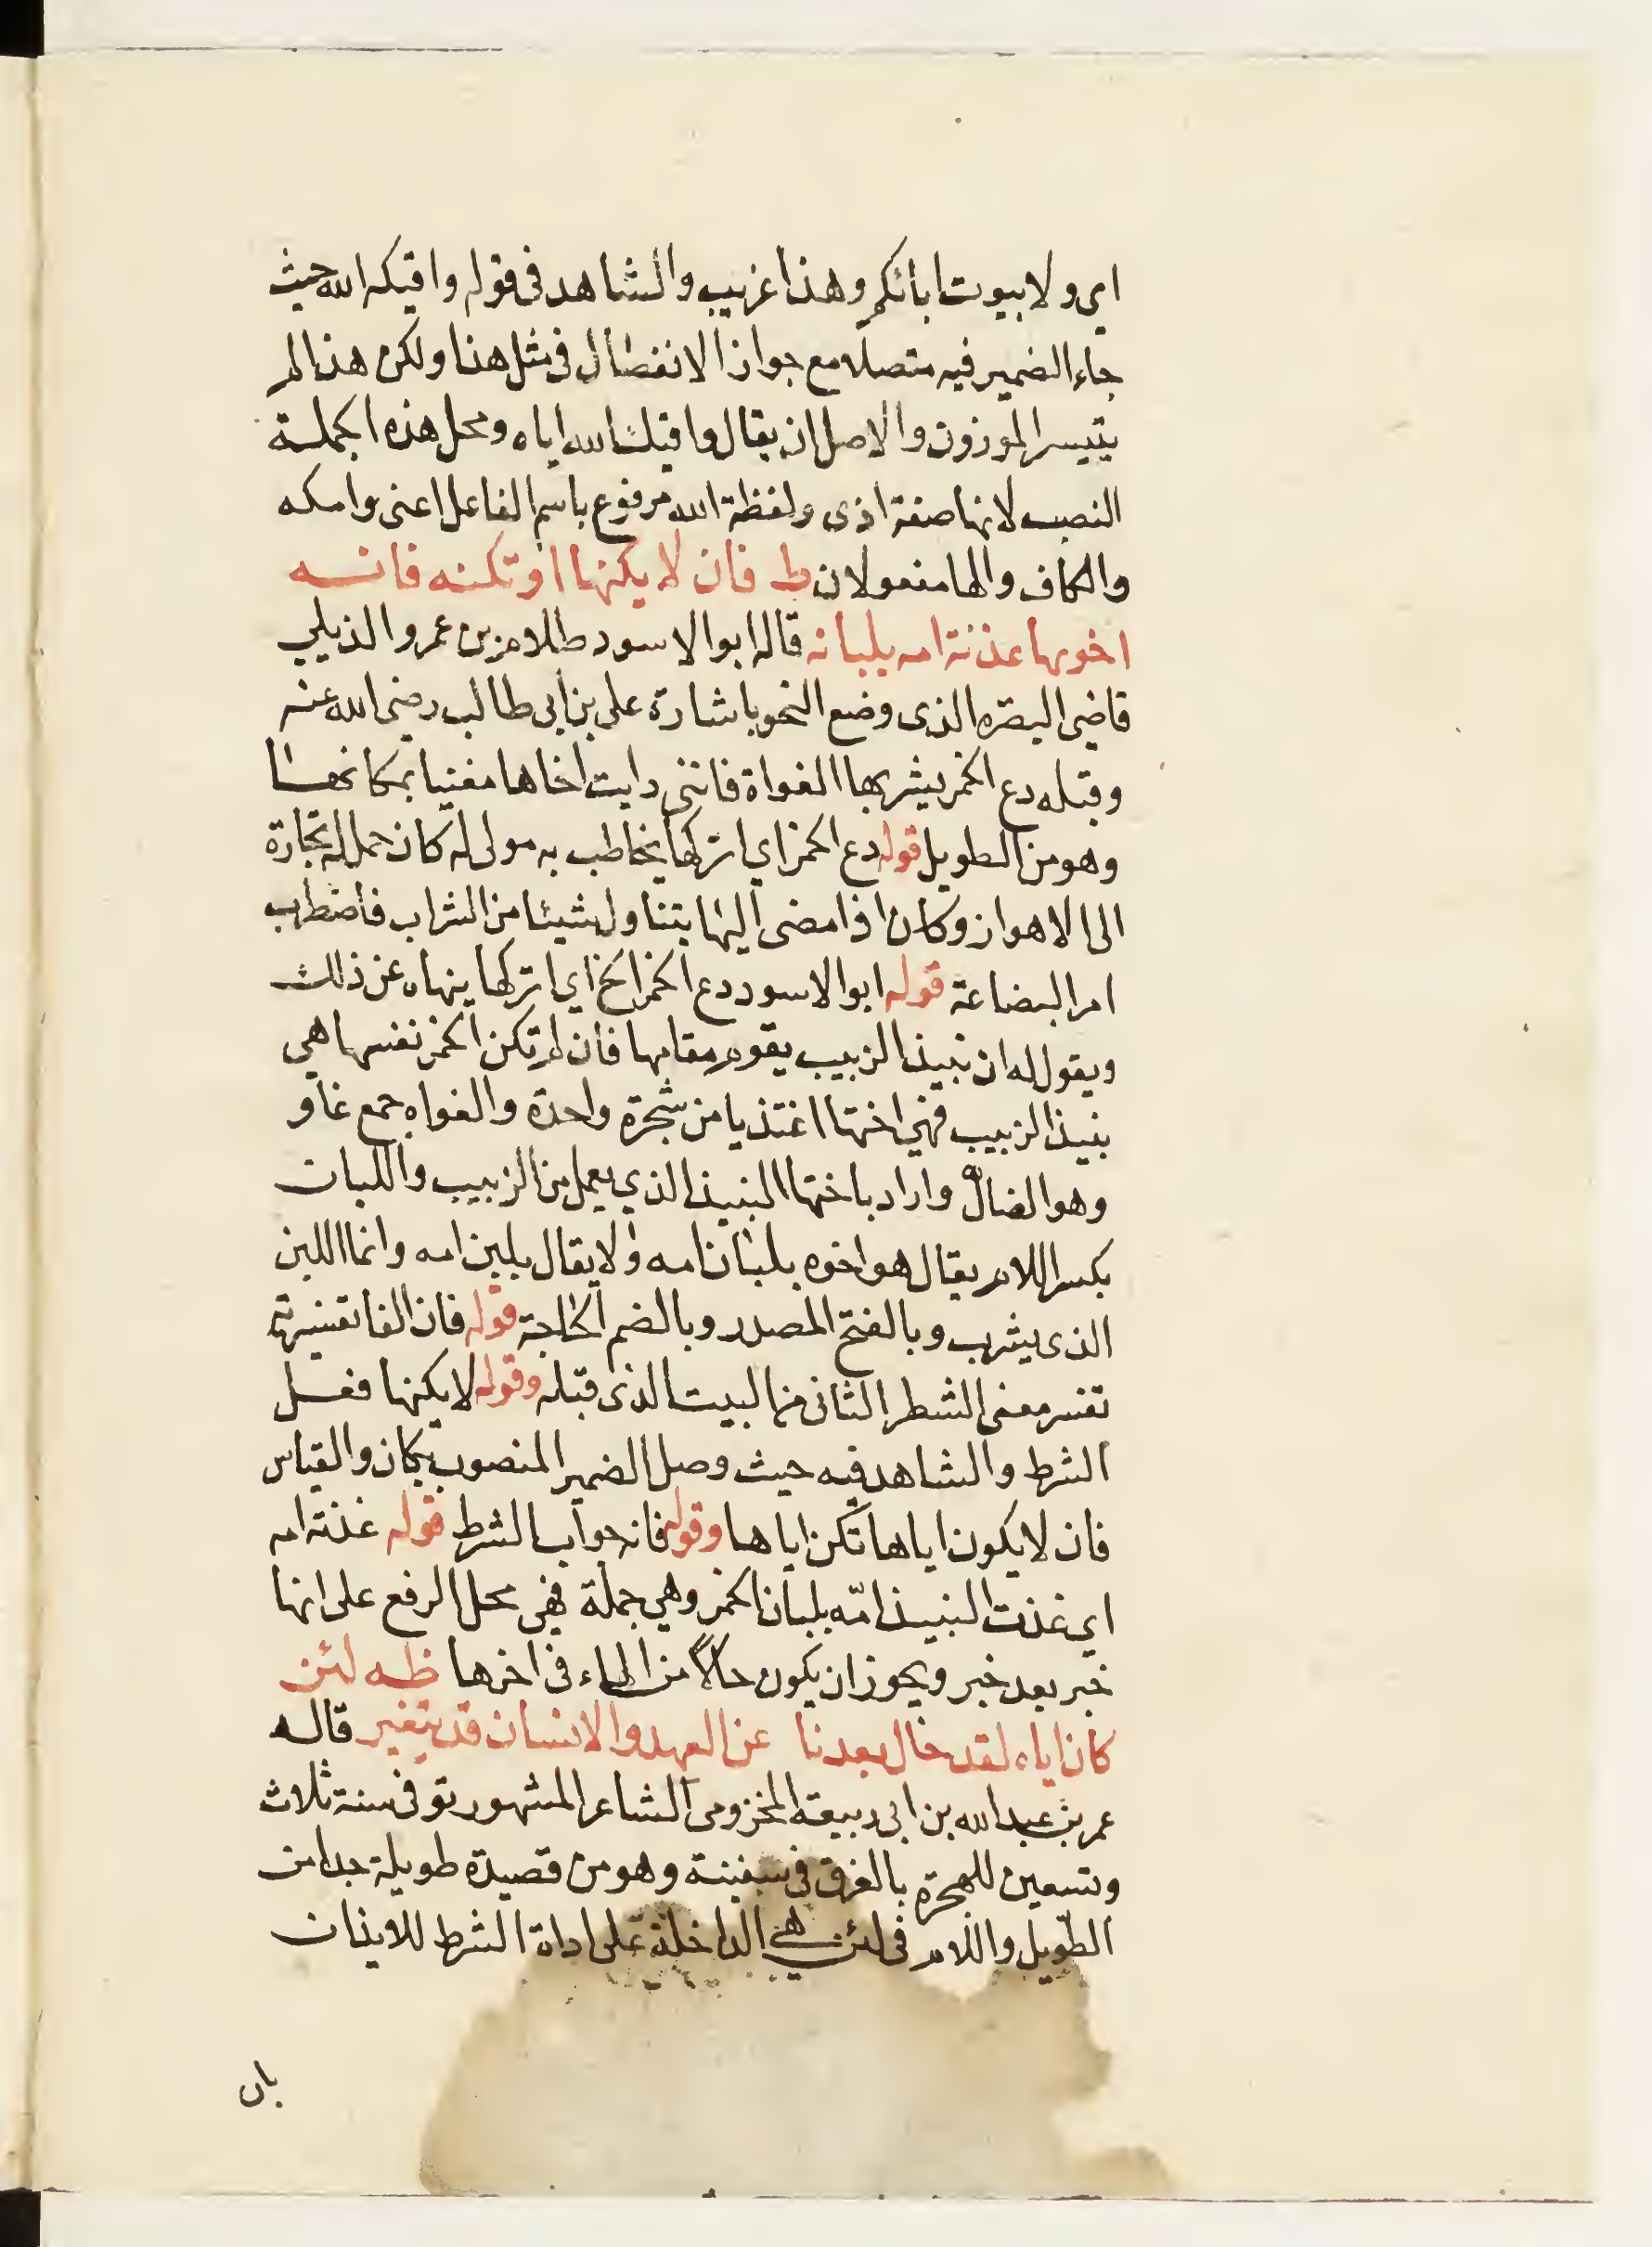 اي ولا بيوت ابائكم وهذا غريب والشاهد في قوله واقيكه الله حيث
جاء الضمير فيه متصلا مع جواز الانفصال في مثل هذا ولكن هذا لم
يتيسر الموزون والاصل ان يقال واقيك الله اياه ومحل هذه الجملة
النصب لانها صفة اذى ولفظة الله مرفوع باسم الفاعل اعنى وامكه
والكاف والها مفعولان ط فان لا يكنها او تكنه فانه
اخوها غذته امه بلبانه قاله ابو الاسود ظالم بن عمرو الذيلي
قاضي البصره الذى وضع النحو باشارة علي بن ابي طالب رضى الله عنه
وقبله دع الخمر يشربها الغواة فانني رايت اخاها مغنيا بمكانها
وهو من الطويل قوله دع الخمر اي اتركها يخاطب به مولى له كان حمل له تجارة
الى الاهواز وكان اذا مضى اليها يتناول شيئا من الشراب فاضطرب
امر البضاعة قوله ابو الاسود دع الخمر الخ اي اتركها ينهاه عن ذلك
ويقول له ان نبيذ الزبيب يقوم مقامها فان لم تكن الخمر نفسها هي
نبيذ الزبيب فهي اختها اغتذيا من شجرة واحدة والغواه جمع غاو
وهو الضال واراد باختها النبيذ الذي يعمل من الزبيب واللبان
بكسر اللام يقال هو اخوه بلبان امه ولا يقال بلبن امه وانما اللبن
الذى يشرب وبالفتح المصدر وبالضم الحاجة قوله فان الفا تفسيرية
تفسر معنى الشطر الثانى من البيت الذى قبله وقوله لا يكنها فعل
الشرط والشاهد فيه حيث وصل الضمير المنصوب بكان والقياس
فان لا يكون اياها تكن اياها وقوله فانه جواب الشرط قوله غذته امه
اي غذت النبيذ امّه بلبان الخمر وهي جملة في محل الرفع على انها
خبر بعد خبر ويجوز ان يكون حالاً من الهاء في اخرها ظه لئن
كان اياه لقد حال بعدنا عن العهد والانسان قد يتغير قاله
عمر بن عبد الله بن ابي ربيعة المخزومى الشاعر المشهور توفى سنة ثلاث
وتسعين للهجرة بالغرق في سفينة وهو من قصيدة طويلة جدا من
الطّويل واللام في لئن هي الداخلة على اداة الشرط للايذان
بان